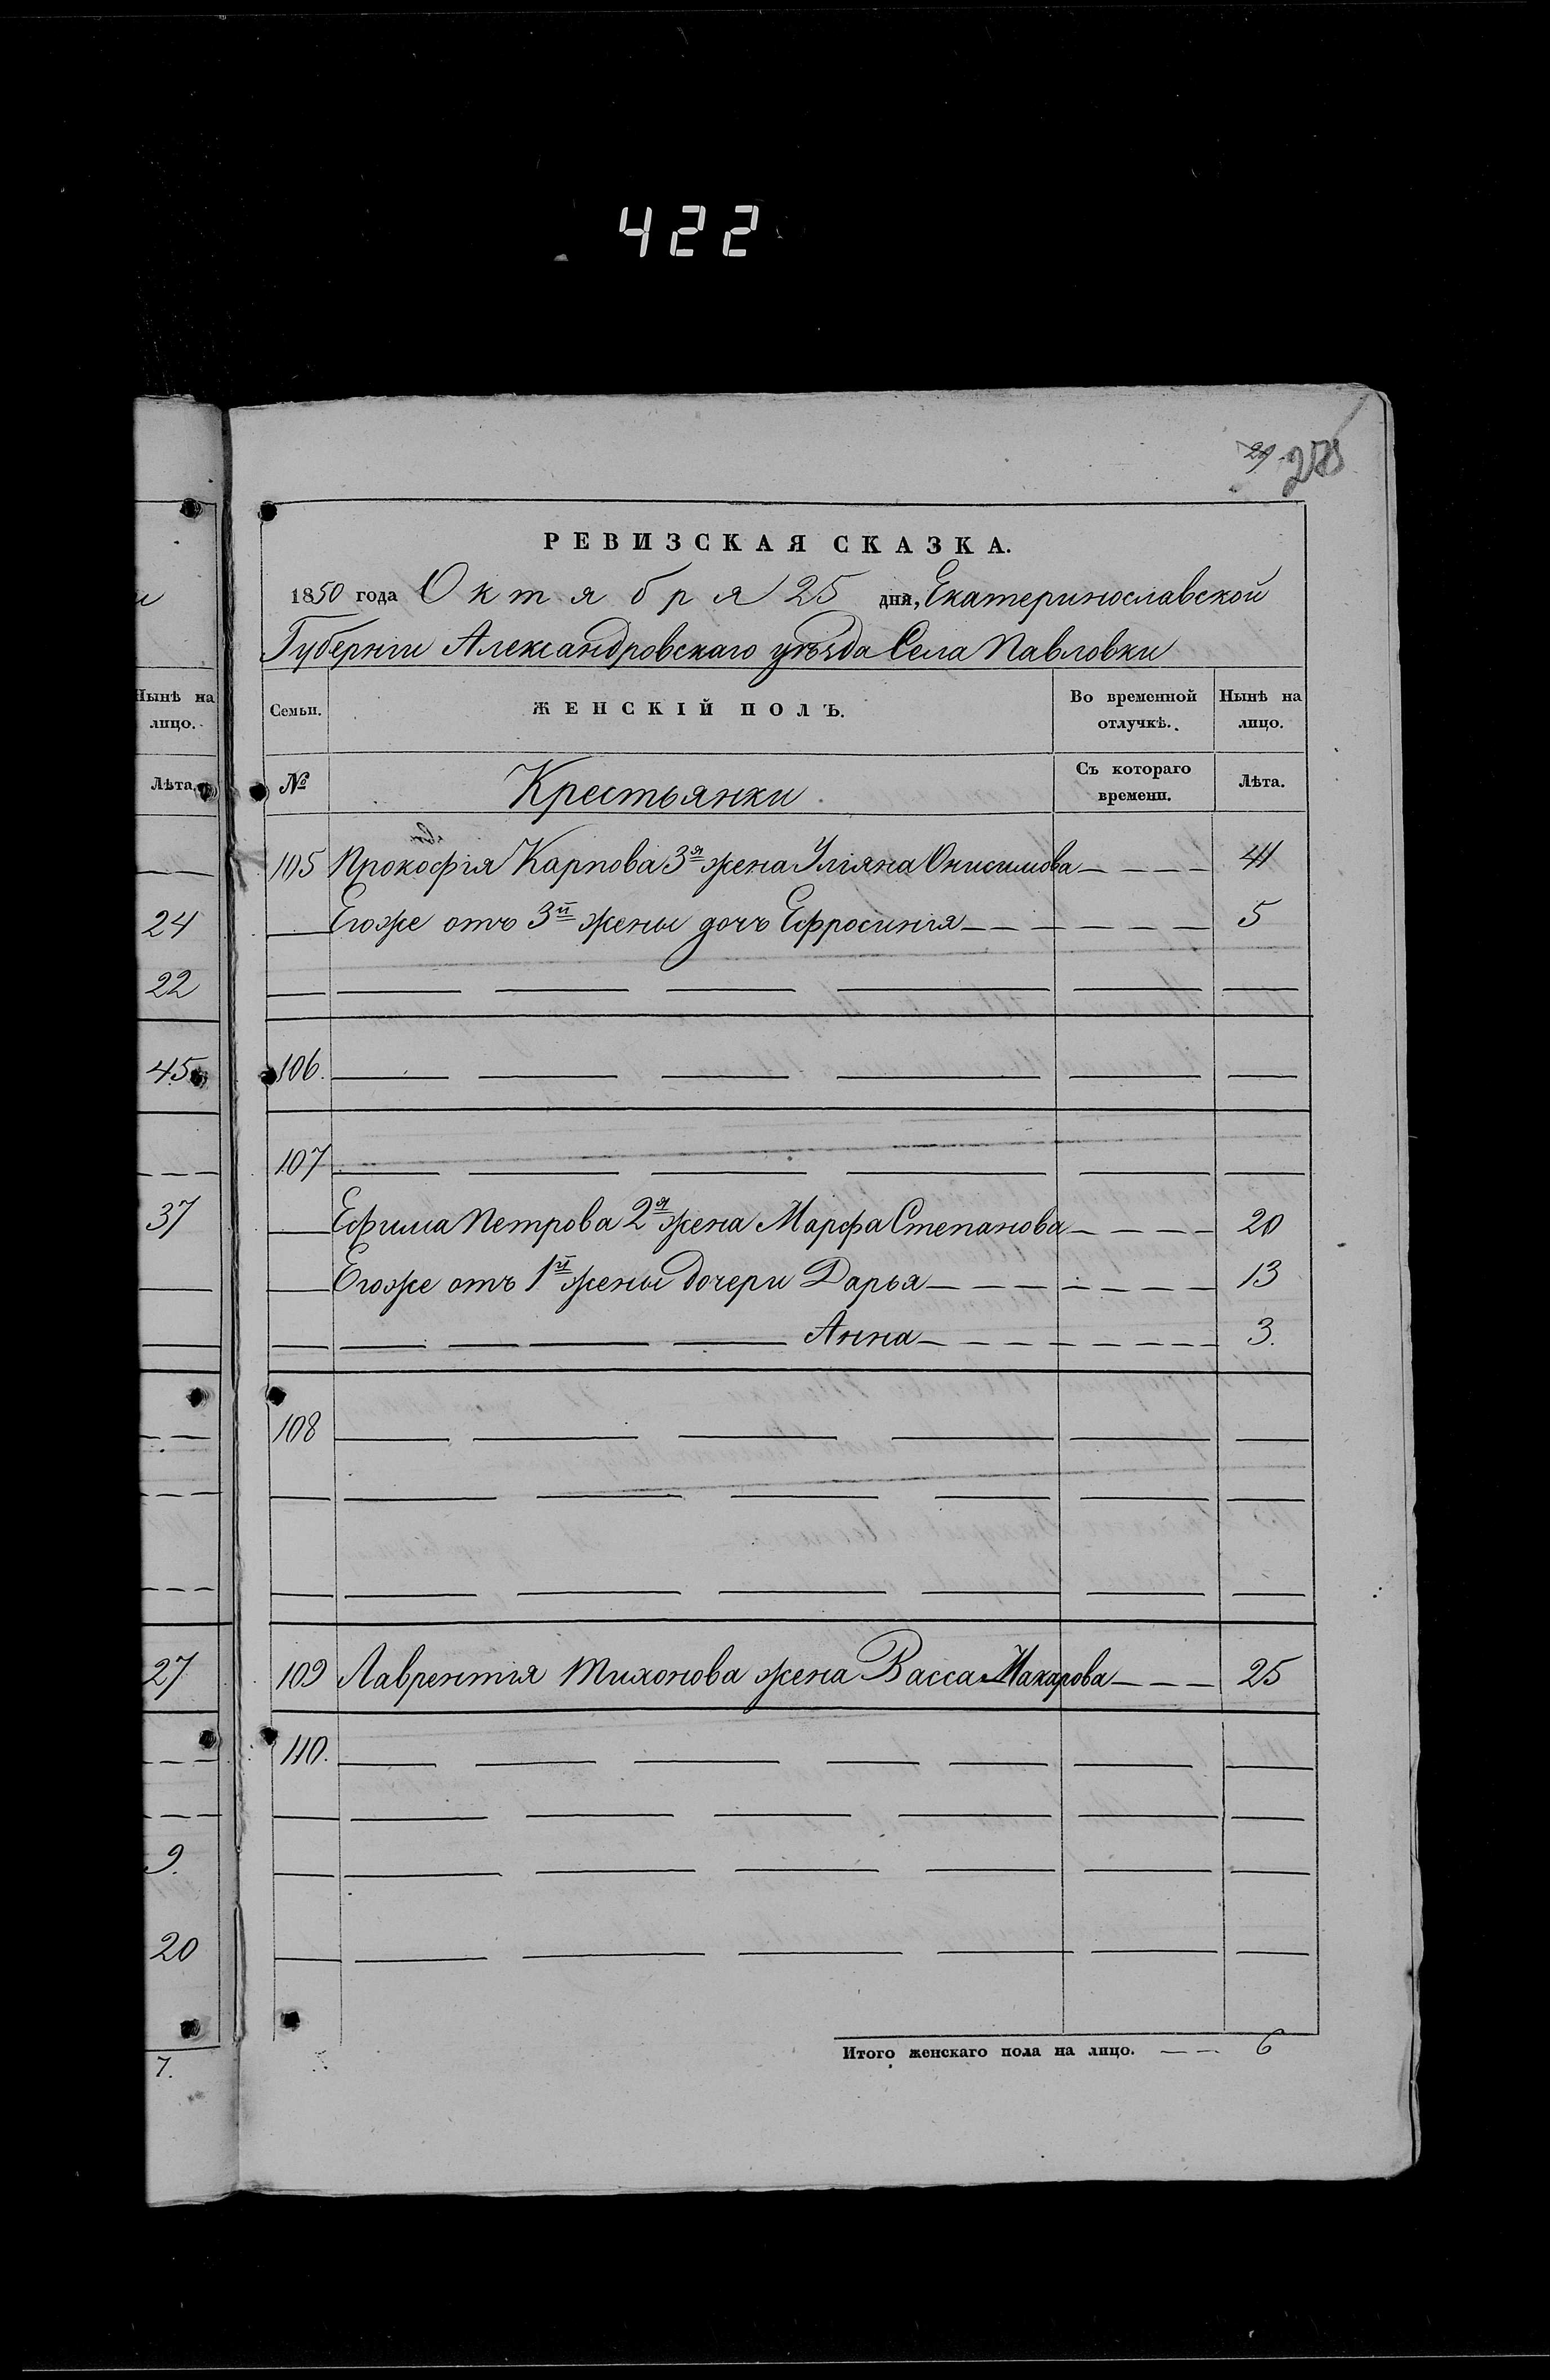 422
и
Нынѣ на
лицо.
Лѣта.
24
22
45
37
27
9.
20
7.
29
РЕВИЗСКАЯ СКАЗКА.
1850 года Октября 25 дня, Екатеринославской
Губерніи Александровскаго уѣзда Села Павловки
Семьи. ЖЕНСКІЙ ПОЛЪ. Во временной отлучкѣ. Нынѣ на лицо.
№ Крестьянки Съ котораго времени. Лѣта.
105 Прокофія Карпова 3я жена Уліяна Онисимова 41
Егоже отъ 3й жены дочь Ефросинія 5
106.
107
Ефима Петрова 2я жена Марфа Степанова 20
Егоже отъ 1й жены дочери Дарья 13
Анна 3.
108
109 Лаврентія Тихонова жена Васса Макарова 25
110.
Итого женскаго пола на лицо. 6